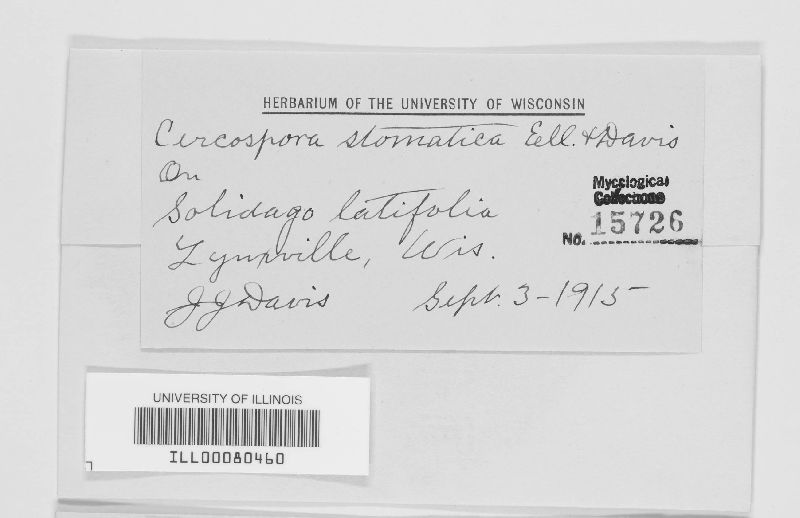 HERBARIUM OF THE UNIVERSITY OF WISCONSIN
Cercospora stomatica Ell. & Davis
On
Solidago latifolia
Lynxville, Wis.
J J Davis Sept. 3-1915
Mycological
Collections
No. 15726
UNIVERSITY OF ILLINOIS
ILL00080460